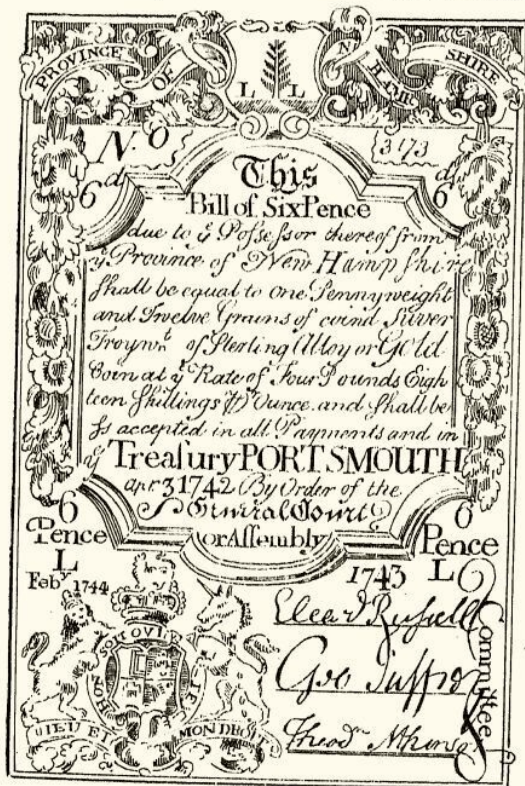 PROVINCE OF N HAMP SHIRE
L L
No 3173
6d 6d
This
Bill of Six Pence
due to ẏ Possessor thereof from
ẏ Province of New Hampshire
Shall be equal to one Pennyweight
and Twelve Grains of coind Silver
Troywt of Sterling Alloy or Gold
Coin at ẏ Rate of Four Pounds Eigh
teen Shillings ⅌ Ounce and shall be
so accepted in all Payments and in
ẏ Treasury PORTSMOUTH
apr 3 1742 By Order of the
General Court
or Assembly
6 Pence L
6 Pence L
Feby 1744
1743
HONI SOIT
DIEU ET MON DROIT
Elea'd Russell
Geo Jaffrey
Theodr Atkinson
Committee